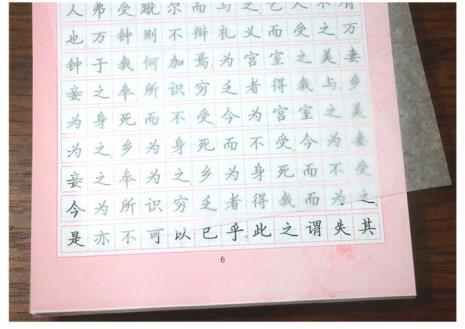 人弗受蹴尔而与之乞人不屑
也万钟则不辩礼义而受之万
钟于我何加焉为宫室之美妻
妾之奉所识穷乏者得我与乡
为身死而不受今为宫室之美
为之乡为身死而不受今为妻
妾之奉为之乡为身死而不受
今为所识穷乏者得我而为之
是亦不可以已乎此之谓失其
6